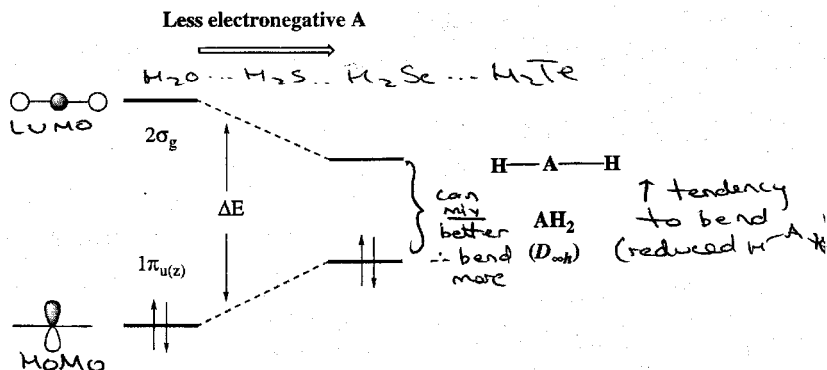 Less electronegative A
H₂O ... H₂S .. H₂Se ... H₂Te
LUMO
2σg
ΔE
1πu(z)
HOMO
can
mix
better
∴ bend
more
H—A—H
AH₂
(D∞h)
↑ tendency
to bend
(reduced H-A